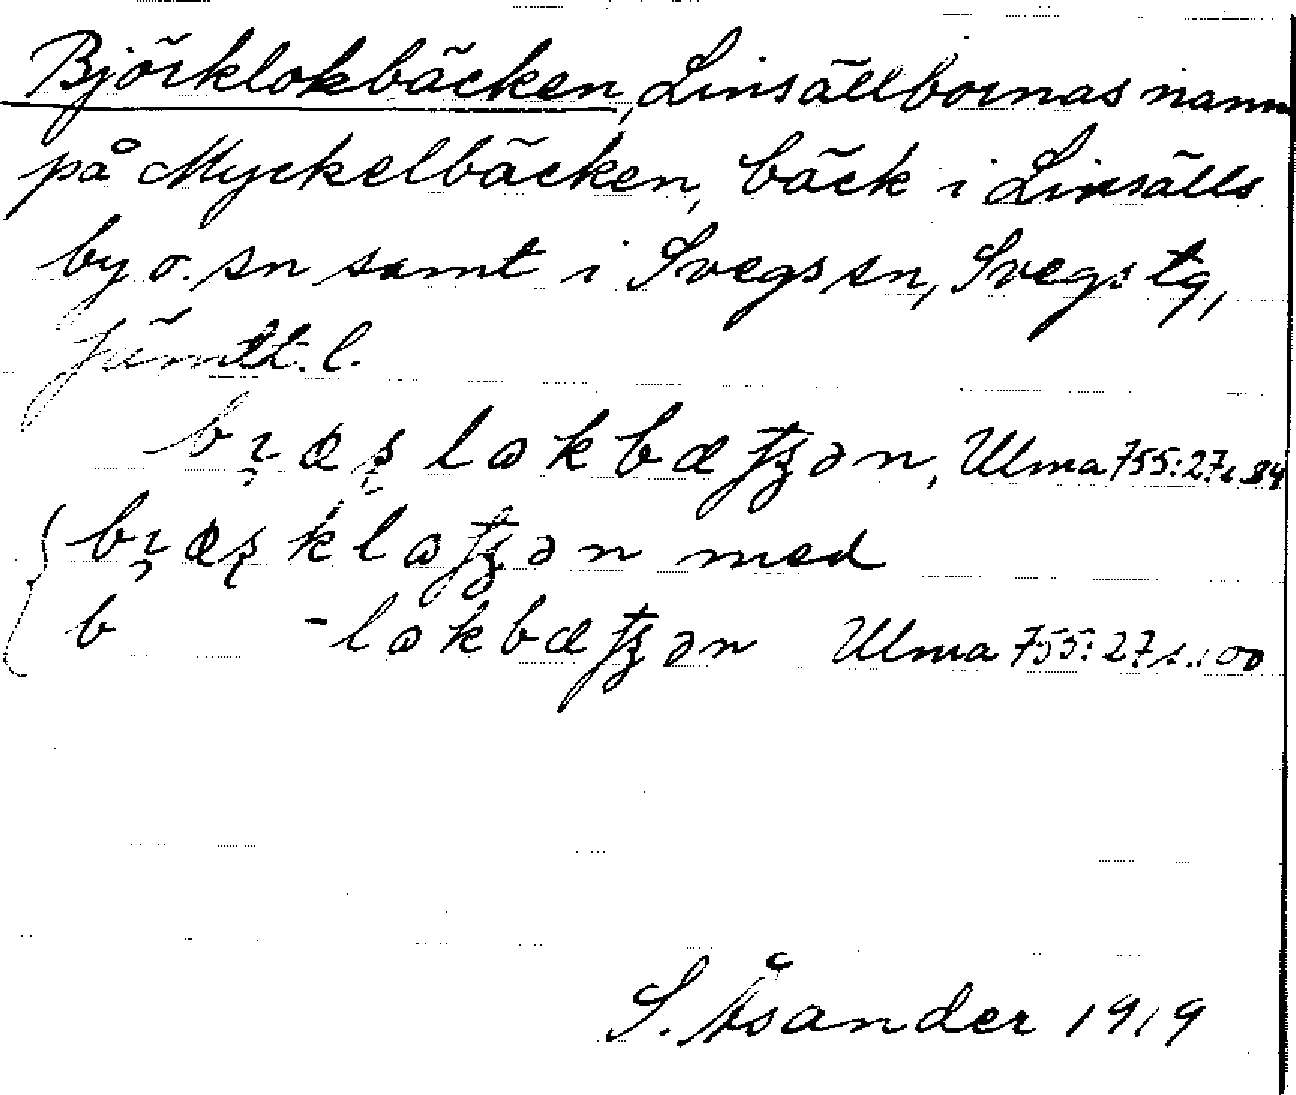 Björklokbäcken, Linsällbornas namn
på Myckelbäcken, bäck i Linsälls
by o. sn samt i Svegs sn, Svegs tg,
Jämtl. l.
Ulma 755:27 s. 84
med
Ulma 755:27 s. 100
S. Åsander 1919